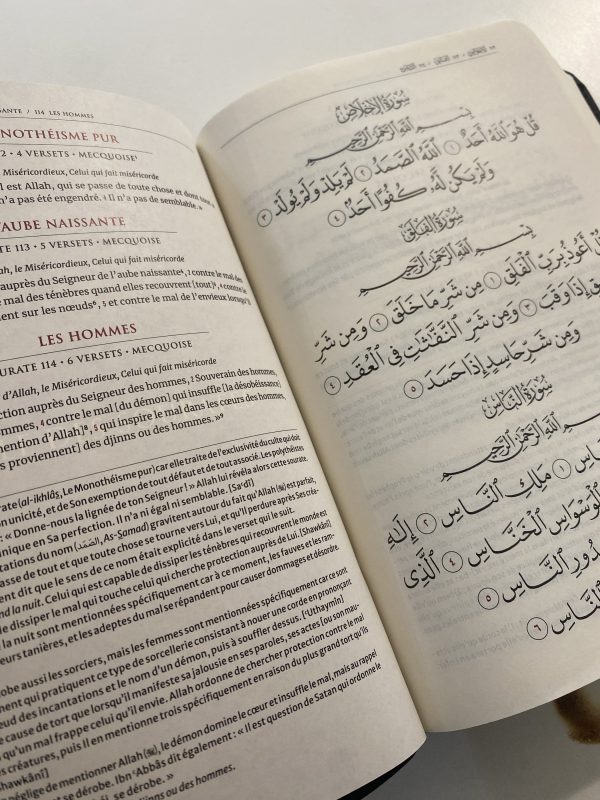 SANTE / 114 LES HOMMES
NOTHÉISME PUR
2 • 4 VERSETS • MECQUOISE¹
Miséricordieux, Celui qui fait miséricorde
est Allah, qui se passe de toute chose et dont tout
n'a pas été engendré. ⁴ Il n'a pas de semblable. »
L'AUBE NAISSANTE
TE 113 • 5 VERSETS • MECQUOISE
ah, le Miséricordieux, Celui qui fait miséricorde
auprès du Seigneur de l'aube naissante⁴, ² contre le mal des
le mal des ténèbres quand elles recouvrent [tout]⁵, ⁴ contre le
ent sur les nœuds⁶, ⁵ et contre le mal de l'envieux lorsqu'il
LES HOMMES
SOURATE 114 • 6 VERSETS • MECQUOISE
d'Allah, le Miséricordieux, Celui qui fait miséricorde
ction auprès du Seigneur des hommes, ² Souverain des hommes,
ommes, ⁴ contre le mal [du démon] qui insuffle [la désobéissance]
mention d'Allah]⁸, ⁵ qui inspire le mal dans les cœurs des hommes,
s proviennent] des djinns ou des hommes. »⁹
rate (al-ikhlâs, Le Monothéisme pur) car elle traite de l'exclusivité du culte qui doit
n unicité, et de Son exemption de tout défaut et de tout associé. Les polythéistes
: « Donne-nous la lignée de ton Seigneur ! » Allah lui révéla alors cette sourate.
nique en Sa perfection. Il n'a ni égal ni semblable. [Sa'dî]
tations du nom (الصَّمَد, As-Samad) gravitent autour du fait qu'Allah est parfait,
asse de tout et que toute chose se tourne vers Lui, et qu'Il perdure après Ses créa-
ent dit que le sens de ce nom était explicité dans le verset qui le suit.
nd la nuit. Celui qui est capable de dissiper les ténèbres qui recouvrent le monde est
de dissiper le mal qui touche celui qui cherche protection auprès de Lui. [Shawkânî]
la nuit sont mentionnées spécifiquement car à ce moment, les fauves et les ram-
eurs tanières, et les adeptes du mal se répandent pour causer dommages et désordre.
obe aussi les sorciers, mais les femmes sont mentionnées spécifiquement car ce sont
ment qui pratiquent ce type de sorcellerie consistant à nouer une corde en prononçant
eud des incantations et le nom d'un démon, puis à souffler dessus. ['Uthaymîn]
e cause de tort que lorsqu'il manifeste sa jalousie en ses paroles, ses actes (ou son mau-
qu'un mal frappe celui qu'il envie. Allah ordonne de chercher protection contre le mal
s créatures, puis Il en mentionne trois spécifiquement en raison du plus grand tort qu'ils
hawkânî]
néglige de mentionner Allah, le démon domine le cœur et insuffle le mal, mais au rappel
se dérobe. Ibn 'Abbâs dit également : « Il est question de Satan qui ordonne le
éi, se dérobe. »
djinns ou des hommes.
سُورَةُ الإِخْلَاصِ
بِسْمِ ٱللَّهِ ٱلرَّحْمَٰنِ ٱلرَّحِيمِ
قُلْ هُوَ ٱللَّهُ أَحَدٌ ١ ٱللَّهُ ٱلصَّمَدُ ٢ لَمْ يَلِدْ وَلَمْ يُولَدْ ٣
وَلَمْ يَكُن لَّهُۥ كُفُوًا أَحَدٌۢ ٤
سُورَةُ الفَلَقِ
بِسْمِ ٱللَّهِ ٱلرَّحْمَٰنِ ٱلرَّحِيمِ
قُلْ أَعُوذُ بِرَبِّ ٱلْفَلَقِ ١ مِن شَرِّ مَا خَلَقَ ٢ وَمِن شَرِّ
إِذَا وَقَبَ ٣ وَمِن شَرِّ ٱلنَّفَّٰثَٰتِ فِى ٱلْعُقَدِ ٤
وَمِن شَرِّ حَاسِدٍ إِذَا حَسَدَ ٥
سُورَةُ النَّاسِ
بِسْمِ ٱللَّهِ ٱلرَّحْمَٰنِ ٱلرَّحِيمِ
ٱلنَّاسِ ١ مَلِكِ ٱلنَّاسِ ٢ إِلَٰهِ
ٱلْوَسْوَاسِ ٱلْخَنَّاسِ ٤ ٱلَّذِى
صُدُورِ ٱلنَّاسِ ٥
ٱلنَّاسِ ٦